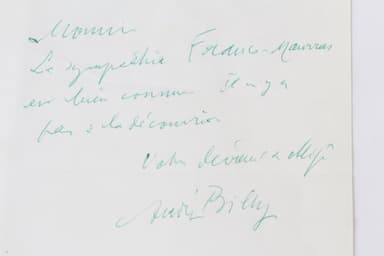 Monsieur
La sympathie France-Maurras
est bien connue. Il n'y a
pas à la découvrir
Votre dévoué et obligé
André Billy